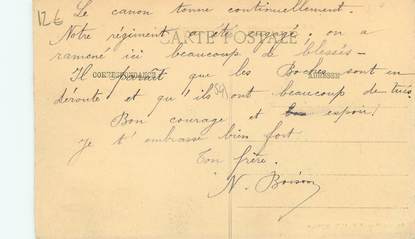 12€
Le canon tonne continuellement.
Notre régiment a été engagé. on a
CARTE POSTALE
ramené ici beaucoup de blessés -
Il paraît que les Boches sont en
CORRESPONDANCE ADRESSE
déroute et qu'ils ont beaucoup de tués
Bon courage et espoir!
Je t'embrasse bien fort
Ton frère.
N. Boison